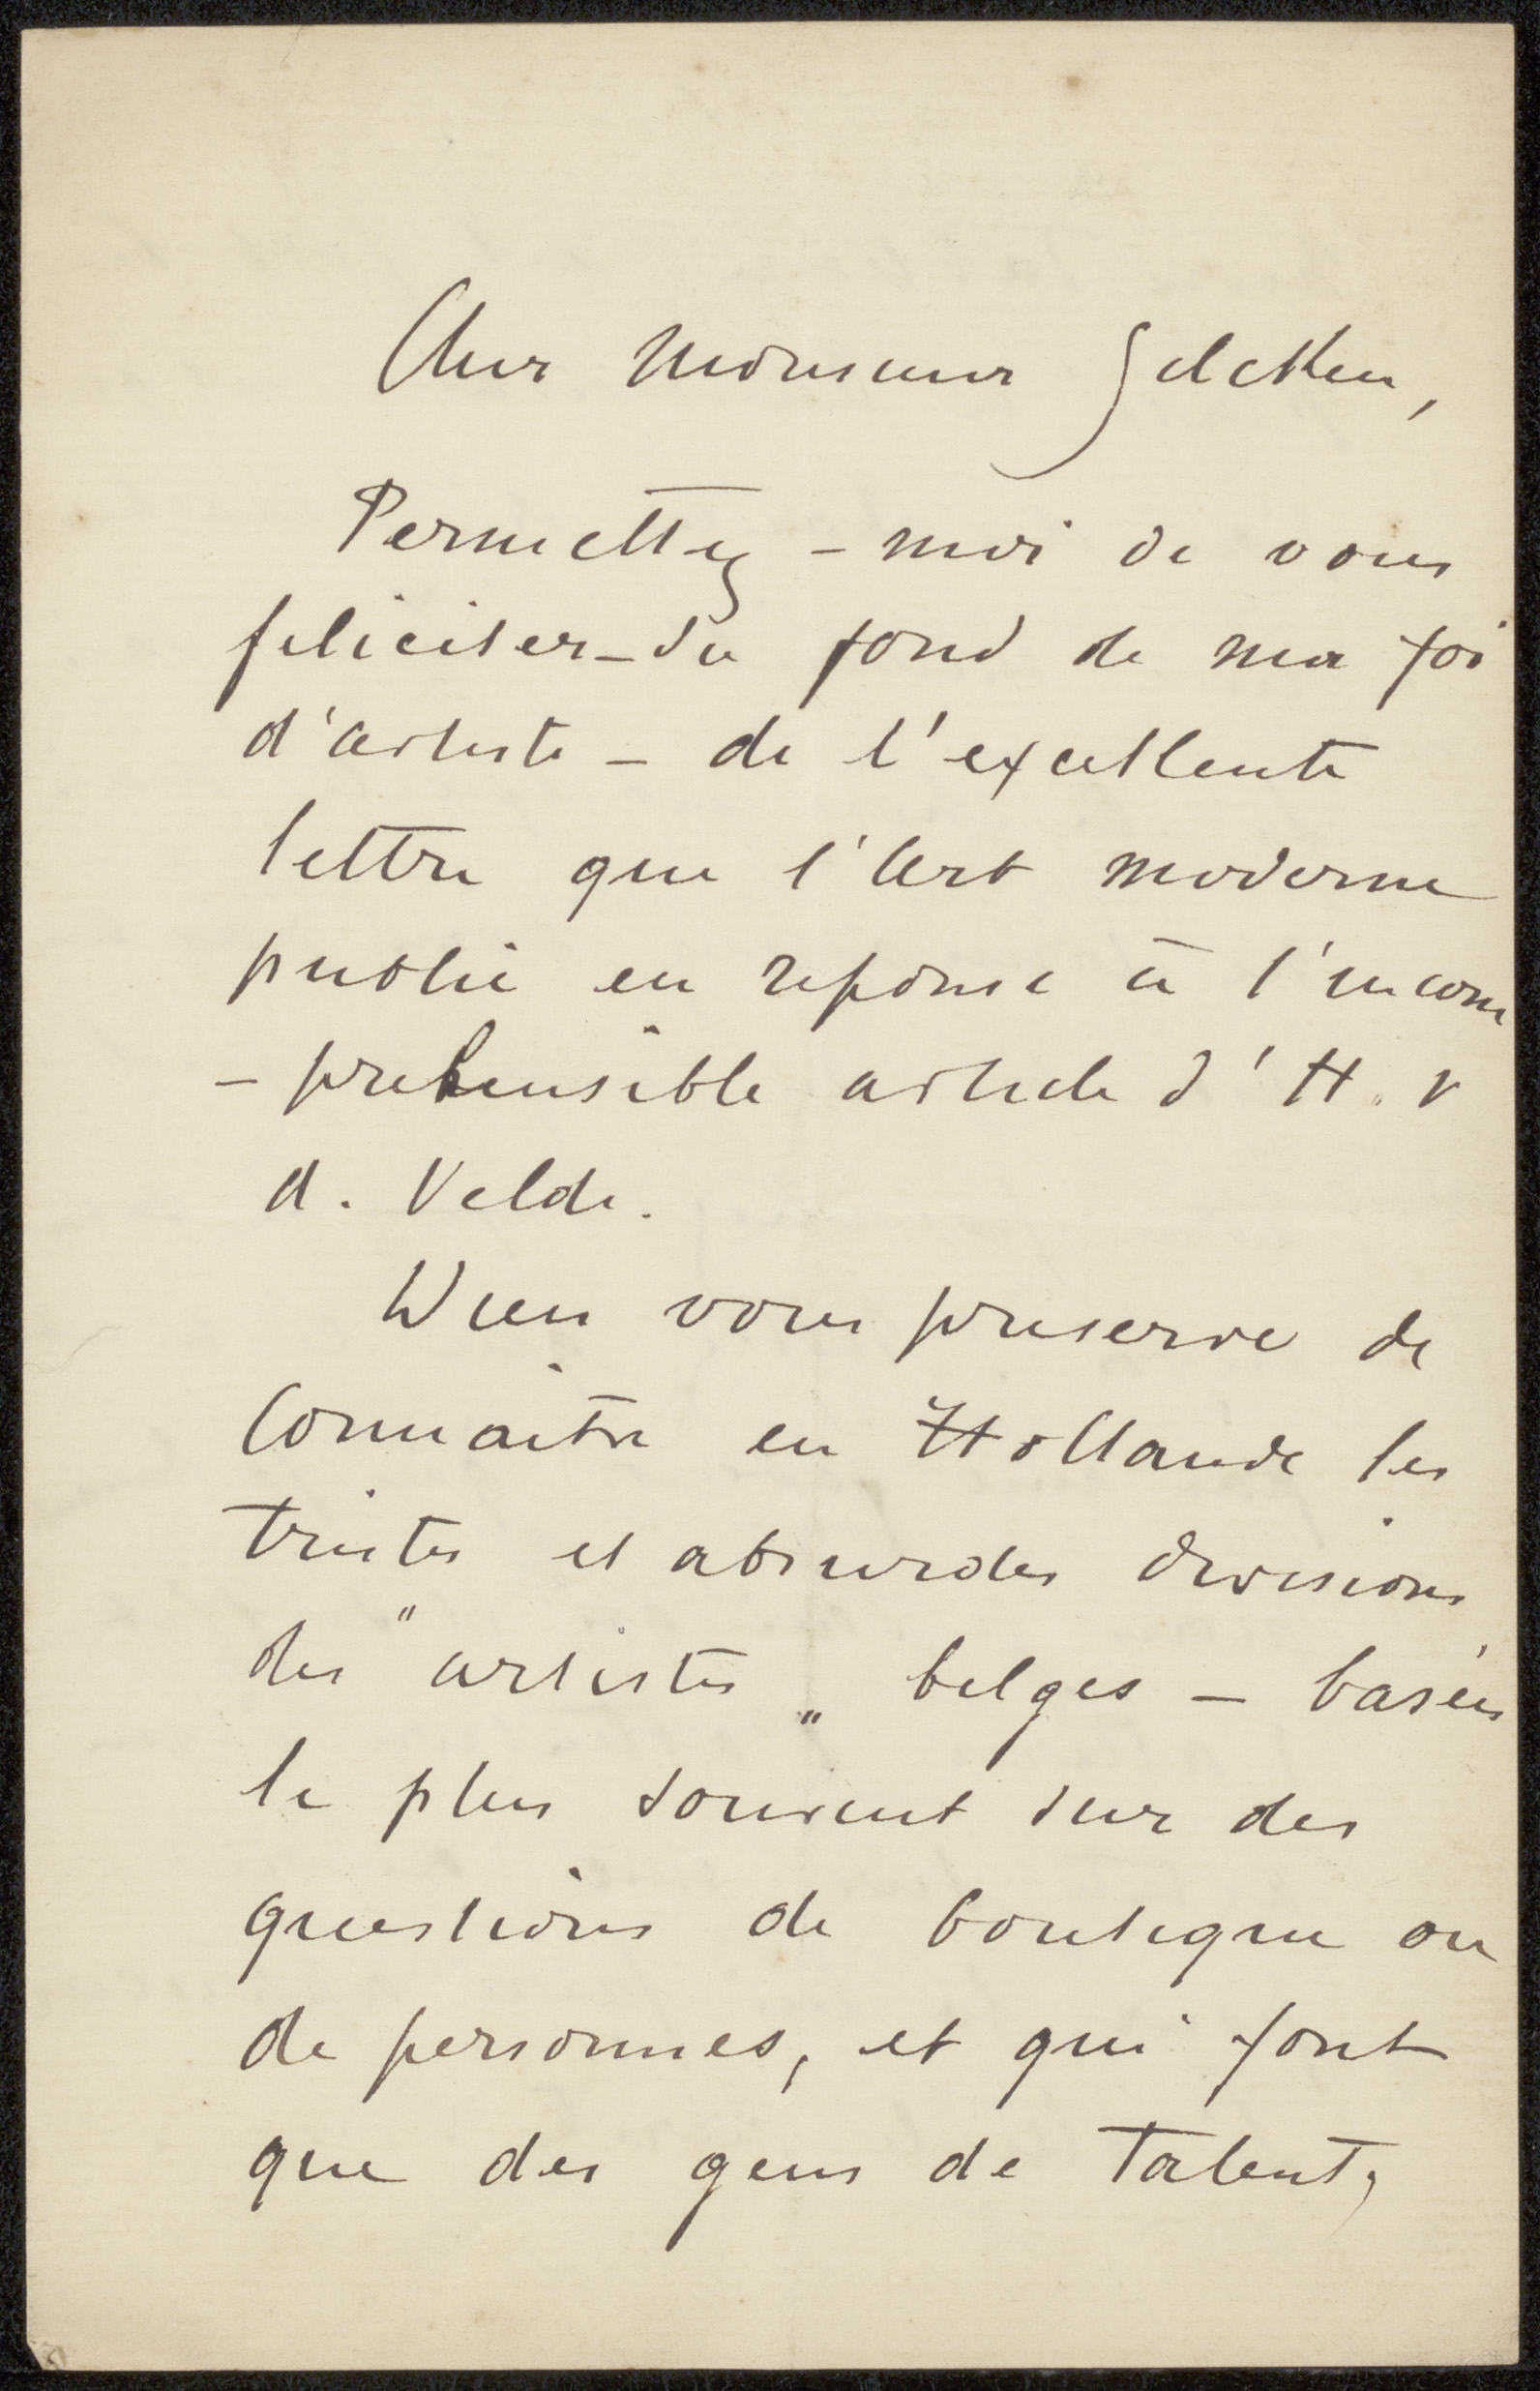 Cher Monsieur Zilcken,
Permettez - moi de vous
feliciter - du fond de ma foi
d'artiste - de l'excellente
lettre que l'Art moderne
publie en reponse à l'incom
- prehensible article d'H. v
d. Velde.
Dieu vous preserve de
connaitre en Hollande les
tristes et absurdes divisions
des "artistes„ belges - basées
le plus souvent sur des
questions de boutique ou
de personnes, et qui font
que des gens de talent,